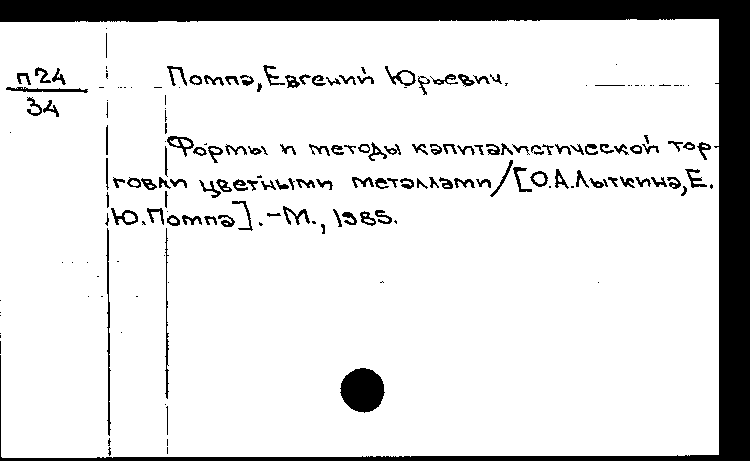 п24
34
Помпа, Евгений Юрьевич.
Формы и методы капиталистической тор-
говли цветными металлами/[О.А.Лыткина, Е.
Ю.Помпа].-М., 1985.